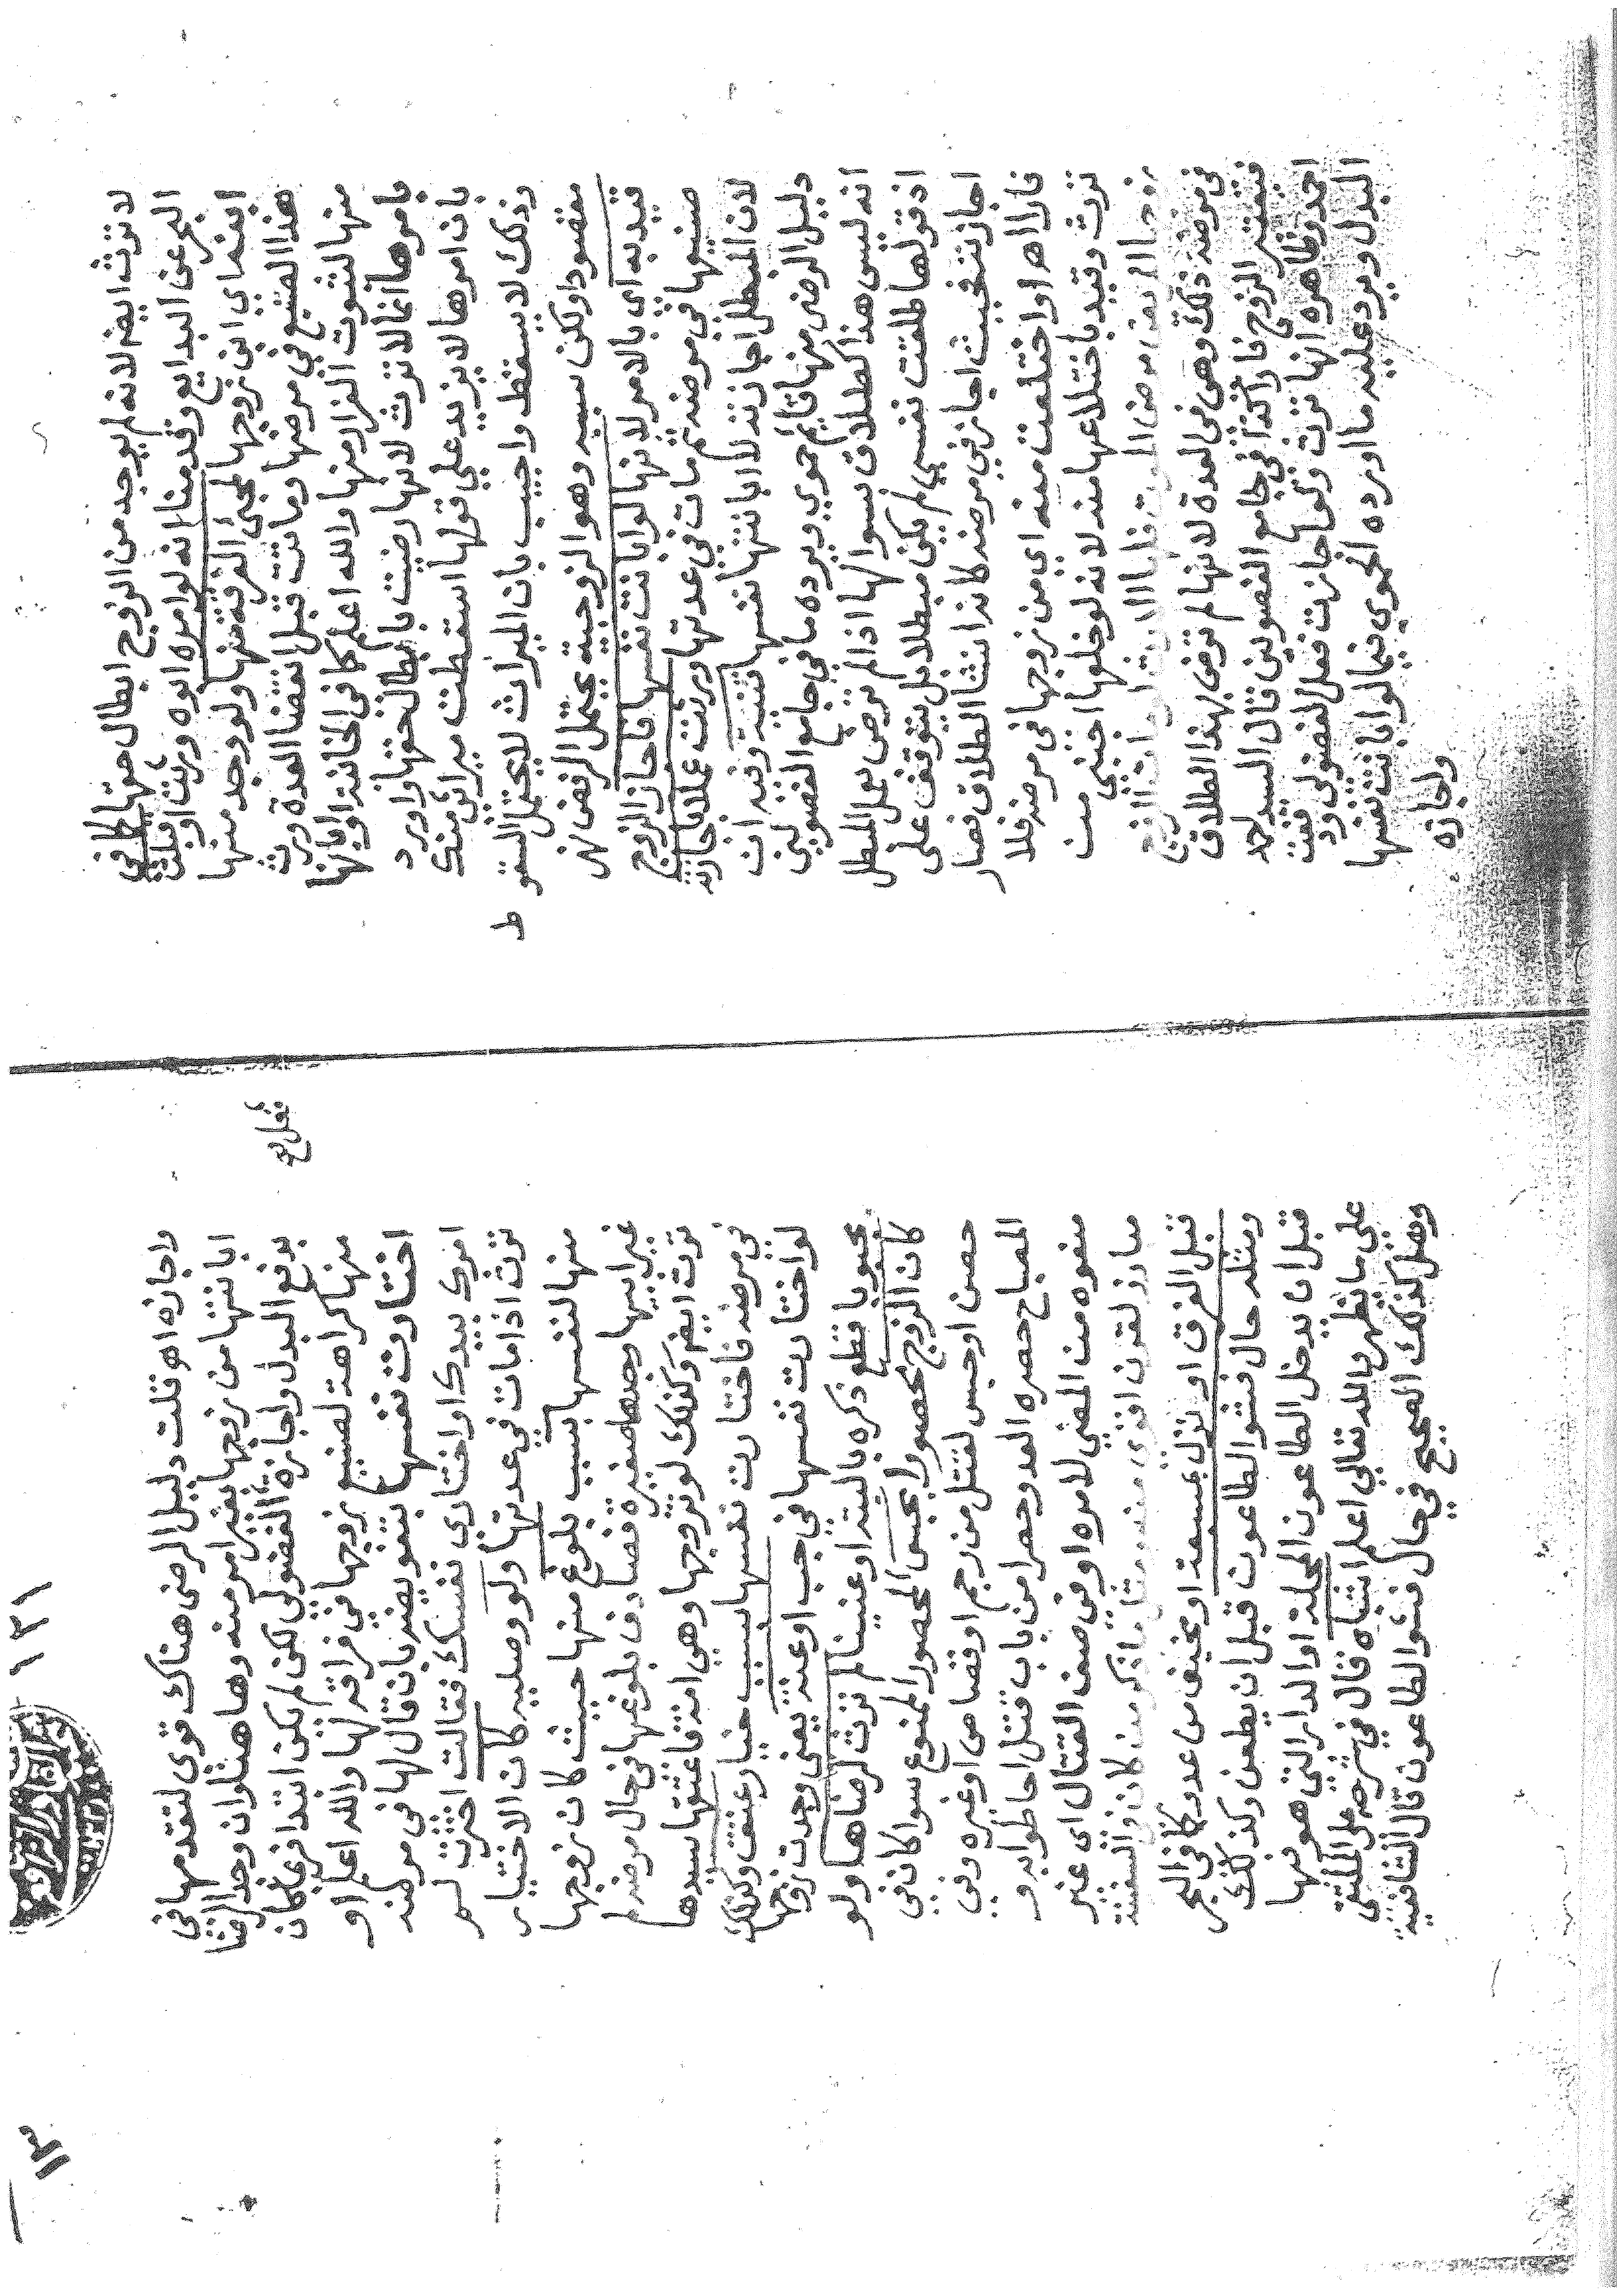 لا ترث ايضا لانه لم يوجد من الزوج ابطال حقها كما في
البحر عن البدايع وقدمنا انه لو امره ابوه ورثت او قبلت
ابنه اي ابن زوجها لمجئ الفرقة منها ولو وجد منها
هذا الصنيع في مرضها وماتت قبل انقضا العدة ورث
منها لثبوت الفرار منها والله اعلم كما في الخانية او ابانها
بامرها انما لا ترث لانها رضيت بابطال حقها واورد
بان امرها لا يزيد علي قولها اسقطت ميراثي منك
وذلك لا يسقط واجيب بان الميراث لا يحتمل السقو
ط
مقصودا ولكن سببه وهو الزوجية يحتمل الرفض نهر
قيد به اي بالامر لانها لو ابانت نفسها فاجاز الزوج
صنيعها في مرضه ثم مات في عدتها ورثت عملا باجازته
لان المبطل اجازته لا ابانتها نفسها قنية وفيه ان
دليل الرضى منها قايم حموي ويرده ما في جامع الفصولين
انه ليس هذا كطلاق بسوالها اذا لم ترض بعمل المبطل
اذ قولها طلقت نفسي لم يكن مبطلا بل يتوقف على
اجازته فحيث اجاز في مرضه كانه انشا الطلاق فصار
فارا اهـ او اختلعت منه اي من زوجها في مرضه فلا
ترث وقيد باختلاعها منه لانه لو خلعها اجنبي من
زوجها المريض مرض الموت فلها الارث لو مات الزوج
في مرضه ذلك وهي في العدة لانها لم ترض بهذا الطلاق
فيعتبر الزوج فارا كذا في جامع الفصولين قال السيد احمد
احمد وظاهره انها ترث ولو اجازت فعل الفضولي ودفعت
البدل ويرد عليه ما اورده الحموي فيما لو ابانت نفسها
واجازه
١٢١
واجازه اهـ قلت دليل الرضى هناك قوي لتقدمها في
ابانتها من زوجها بغير امر منه وها هنا وان وجد الرضا
بدفع البدل واجازة الفضولي لكن لم يكن ابتدا فرعا كان
منها كراهة لصنيع زوجها في فراقه لها والله اعلم او
اختارت نفسها بتفويضه بان قال لها في مرضه
امرك بيدك او اختاري نفسك فقالت اخترت لم
ترث اذا مات في عدتها ولو وصليه كان الاختيار
منها لنفسها بسبب بلوغ منها حيث كان زوجها
غير ابيها وجدها صغيرة فصادف بلوغها في حال مرضه لم
ترث ايضا وكذلك لو تزوجها وهي امة فاعتقها سيدها
في مرضه فاختارت نفسها بسبب خيار عتق وكذلك
لو اختارت نفسها في جب او عنة يعني وجدت زوجها
مجبوبا بقطع ذكره بالبتة او عنينا لم ترث لرضاها ولو
كان الزوج محصورا بحبس المحصور الممنوع سوا كان في
حصن او حبس لقتل من رجم او قصاص او غيره وفي
المصباح حصره العدو حصرا من باب قتل احاطوا به و
منعوه من المضي لامره او في صف القتال اي غير
مبارز لقرن اقوى منه ومثله من كان في السفينة
قبل الغرق او نزل بمسبعة او مخيف من عدو كما في البحر
ومثله حال فشو الطاعون قبل ان يطعن وكذلك
قبل ان يدخل الطاعون المحلة او الدار التي هو فيها
على ما يظهر والله تعالى اعلم اشباه قال في شرحه على الملتقى
وهل كذلك الصحيح في حال فشو الطاعون قال الشافعية